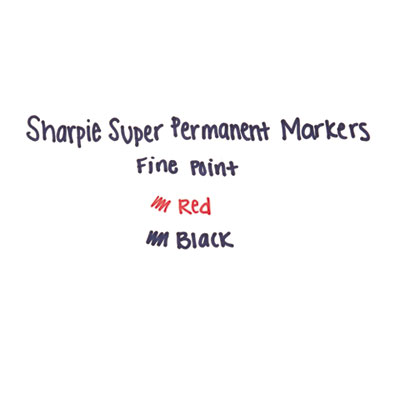 Sharpie Super Permanent Markers
Fine Point
Red
Black